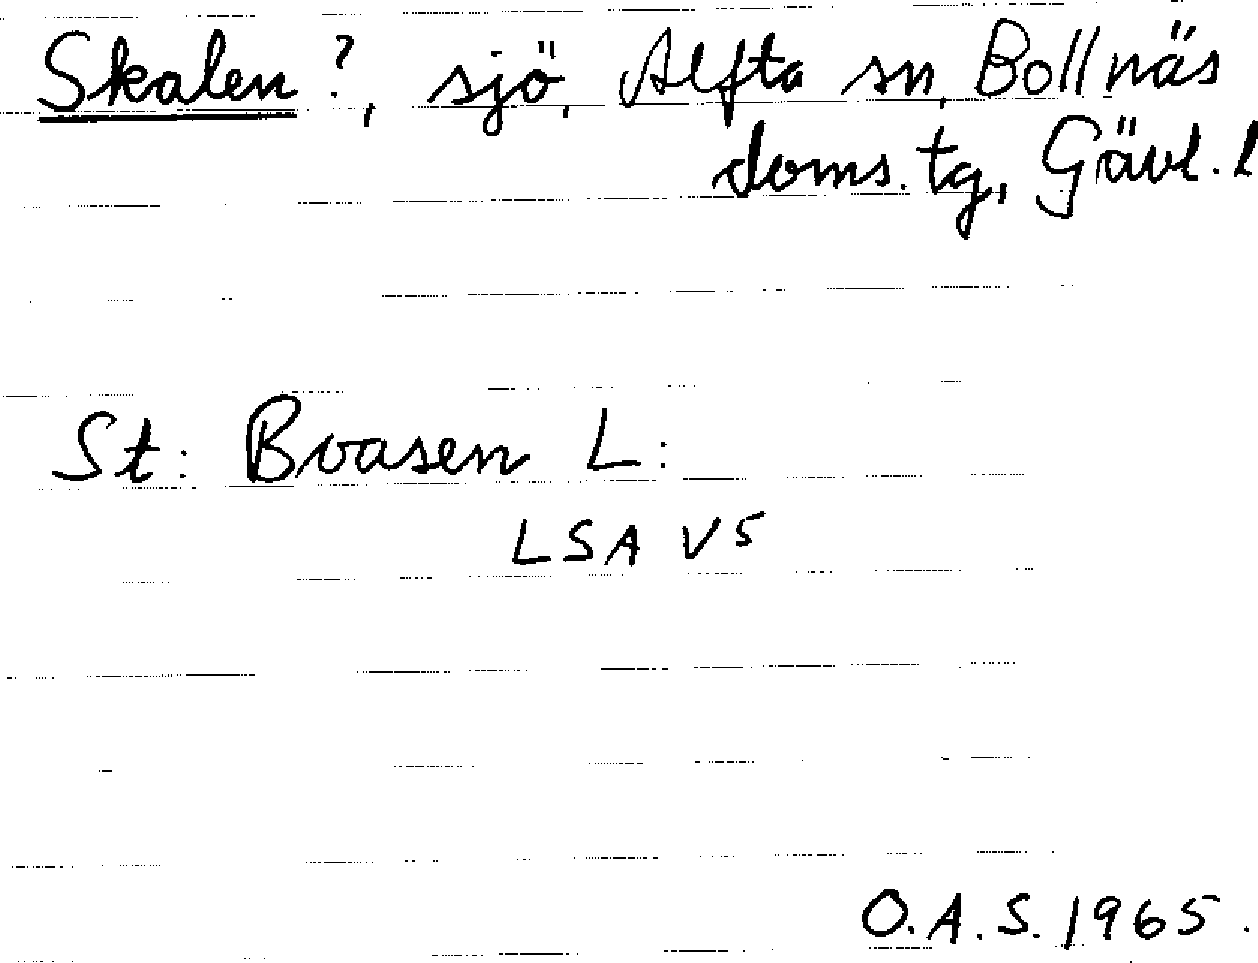 Skalen ?, sjö, Alfta sn, Bollnäs
doms. tg, Gävl. l
St: Brasen L:
LSA V5
O.A.S. 1965.